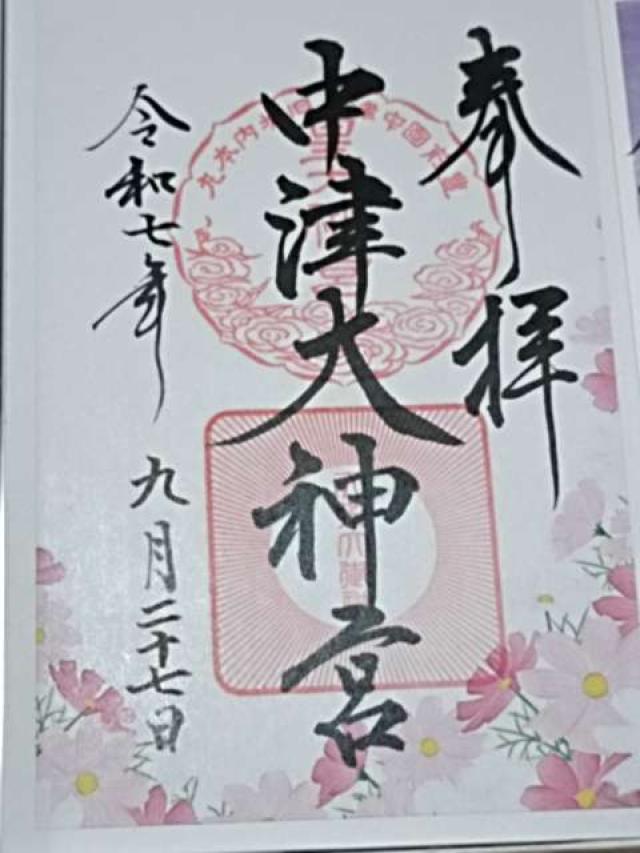 奉拝
中津大神宮
令和七年
九月二十七日